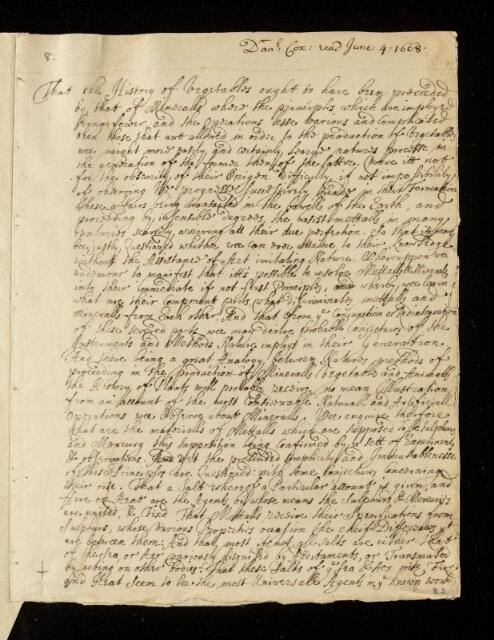 8.
Danl. Cox: read June 4: 1668.
That the History of Vegetables ought to have been preceded
by that of Mineralls where the principles which are imployed
being fewer, and the Operations lesse various and Complicated
then those that are allured in order to the production of Vegetables
wee might more easily and certainly learne natures processe in
the generation of the former then of the latter. were itt not
for the obscurity of their Origen difficulty if not impossibility
of observing the progresse successively made in their formation
these affairs being transacted in the bowells of the Earth, and
proceeding by insensible degrees, the basest mettalls in many
centuries scarcely acquiring all their due perfection. So that itt may
bee justly Questioned whether wee can ever attaine to their Knowledge
without the Assistance of Art imitating Nature. Whereupon wee
endeavour to manifest that itt's possible to resolve Mettalls Mineralls
into their immediate if not First Principles, whereby wee learn
what are their component parts what discriminates mettalls and
minerals from each other. And that from ye Conjunction or Redintegration
of these severed parts wee may derive probable conjectures of the
Instruments and Methods Nature imploys in their Generation.
And there being a great Analogy between Natures methods of
proceeding in the production of Mineralls, Vegetables and Animalls
the History of Plants will probably receive no mean Illustration
from an account of the most Considerable Naturall and Artificiall
Operations wee Observe about Mineralls. Wee enquire therefore
what are the materialls of Metalls which are supposed to be Sulphur
and Mercury this supposition being confirmed by a sett of Experiments
& Observations. the pretended simplicity and
of these Principles are Questioned: with some conjectures concerning
their rise. That a Salt whereof a Particular account is given and
Fire or Heat are the Agents by whose means the Sulphurs & Mercurys
are united & Fixed. That Metalls receive their Specifications from
Sulphurs, whose various Proprieties occasion the chief Differences yt
are between them: And that most if not all Salts are either that
of the Sea or Aer variously disguised by Ferments, or Transmuted
by acting on other bodies. That these Salts of ye Sea & Aer with Fire
and Heat seem to bee the most Universall Agents in ye known world